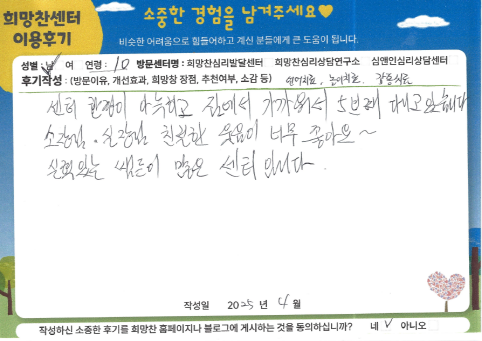 희망찬센터
이용후기
소중한 경험을 남겨주세요
비슷한 어려움으로 힘들어하고 계신 분들에게 큰 도움이 됩니다.
성별 : 남 여 연령 : 10 방문센터명 : 희망찬심리발달센터 희망찬심리상담연구소 심앤인심리상담센터
후기작성 : (방문이유, 개선효과, 희망찬 장점, 추천여부, 소감 등) 언어치료, 놀이치료, 감통치료
센터 환경이 아늑하고 집에서 가까워서 5년째 다니고 있습니다
소장님, 실장님 친절한 웃음이 너무 좋아요~
실력있는 쌤들이 많은 센터 입니다.
작성일 2025 년 4 월
작성하신 소중한 후기를 희망찬 홈페이지나 블로그에 게시하는 것을 동의하십니까? 네 ✓ 아니오